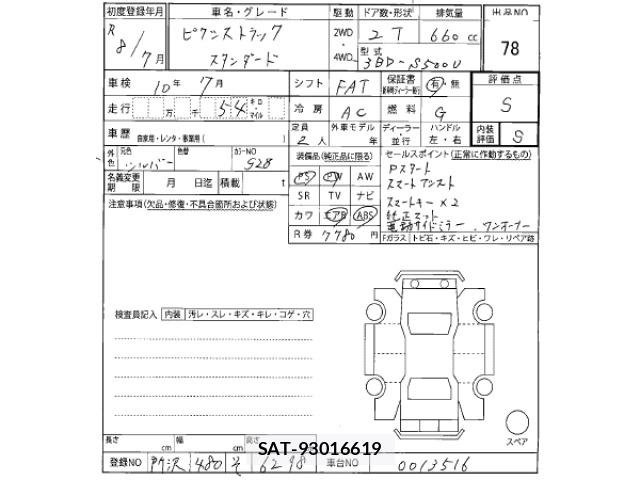 初度登録年月 車名・グレード 駆動 ドア数・形状 排気量 出品NO
R 8/7月 ピクシストラック 2WD・4WD 2 T 660cc 78
スタンダード 型式 3BD-S500U
車検 10年 7月 シフト FAT 保証書 有・無 評価点
走行 万 千 54 キロ・マイル 冷房 AC 燃料 G S
車歴 自家用・レンタ・事業用( ) 定員 2人 外車モデル 年 ディーラー・並行 ハンドル 左・右 内装評価 S
外色 元色 シルバー 色替 カラーNO S28 装備品(純正品に限る) セールスポイント(正常に作動するもの)
名義変更期限 月 日迄 積載 t PS PW AW Pスタート
注意事項(欠品・修復・不具合箇所および状態) SR TV ナビ スマートアシスト
カワ エアB ABS スマートキー×2
R券 7780円 純正マット
電動サイドミラー、ワンオーナー
Fガラス トビ石・キズ・ヒビ・ワレ・リペア跡
検査員記入 内装 汚レ・スレ・キズ・キレ・コゲ・穴
スペア
長さ cm 幅 cm 高さ
SAT-93016619
登録NO 所沢 480 そ 6298 車台NO 0013516